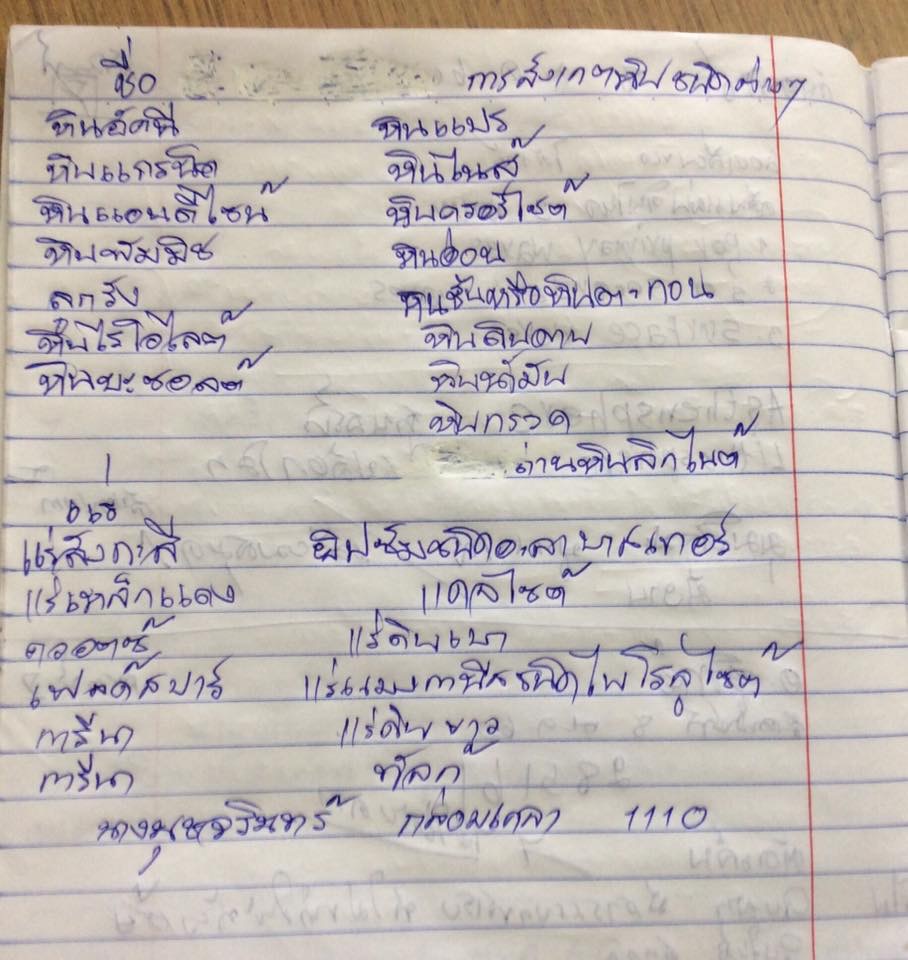 ชื่อ การสังเกตหินชนิดต่างๆ
หินอัคนี หินแปร
หินแกรนิต หินไนส์
หินแอนดีไซน์ หินควอร์ไซต์
หินพัมมิช หินอ่อน
ลูกรัง หินชั้นหรือหินตะกอน
หินไรโอไลต์ หินดินดาน
หินบะซอลต์ หินน้ำมัน
หินกรวด
ถ่านหินลิกไนต์
แร่
แร่สังกะสี ยิปซัมชนิดอะลาบาสเทอร์
แร่เหล็กแดง แคลไซต์
ควอตซ์ แร่ดีบุก
เฟลด์สปาร์ แร่แมงกานีสชนิดไพโรลูไซต์
กาลีนา แร่ดินขาว
กาลีนา ทัลก์
1110